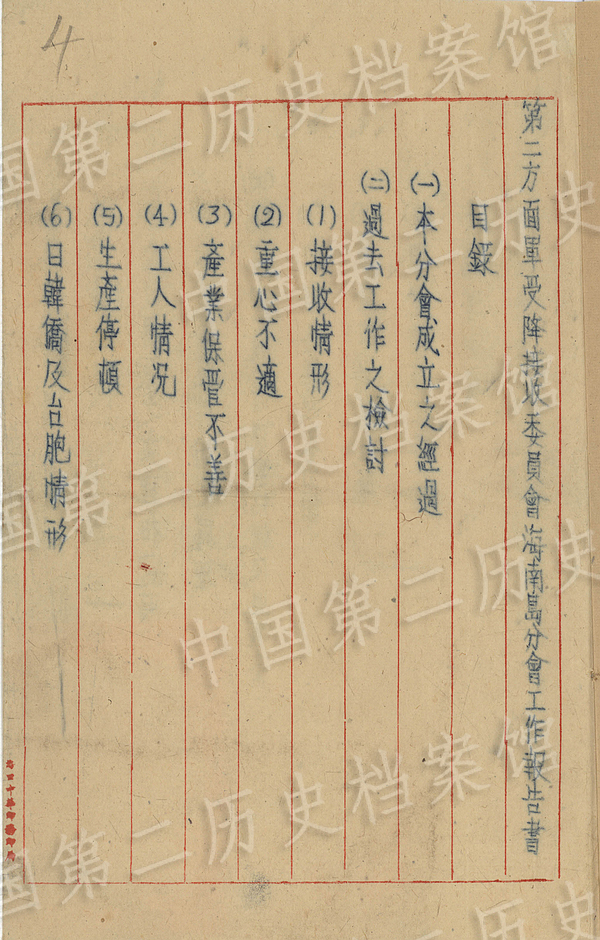 4
第二方面軍受降接收委員會海南島分會工作報告書
目錄
(一)本分會成立之經過
(二)過去工作之檢討
(1)接收情形
(2)重心不適
(3)產業保管不善
(4)工人情況
(5)生產停頓
(6)日韓僑及台胞情形
中国第二历史档案馆